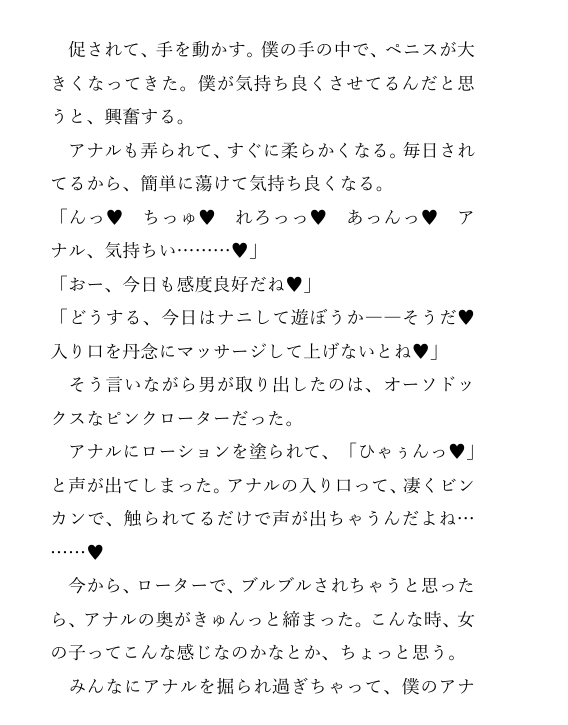 促されて、手を動かす。僕の手の中で、ペニスが大
きくなってきた。僕が気持ち良くさせてるんだと思
うと、興奮する。
アナルも弄られて、すぐに柔らかくなる。毎日され
てるから、簡単に蕩けて気持ち良くなる。
「んっ♥　ちっゅ♥　れろっっ♥　あっんっ♥　ア
ナル、気持ちい………♥」
「おー、今日も感度良好だね♥」
「どうする、今日はナニして遊ぼうか――そうだ♥
入り口を丹念にマッサージして上げないとね♥」
そう言いながら男が取り出したのは、オーソドッ
クスなピンクローターだった。
アナルにローションを塗られて、「ひゃぅんっ♥」
と声が出てしまった。アナルの入り口って、凄くビン
カンで、触られてるだけで声が出ちゃうんだよね…
……♥
今から、ローターで、ブルブルされちゃうと思った
ら、アナルの奥がきゅんっと締まった。こんな時、女
の子ってこんな感じなのかなとか、ちょっと思う。
みんなにアナルを掘られ過ぎちゃって、僕のアナ